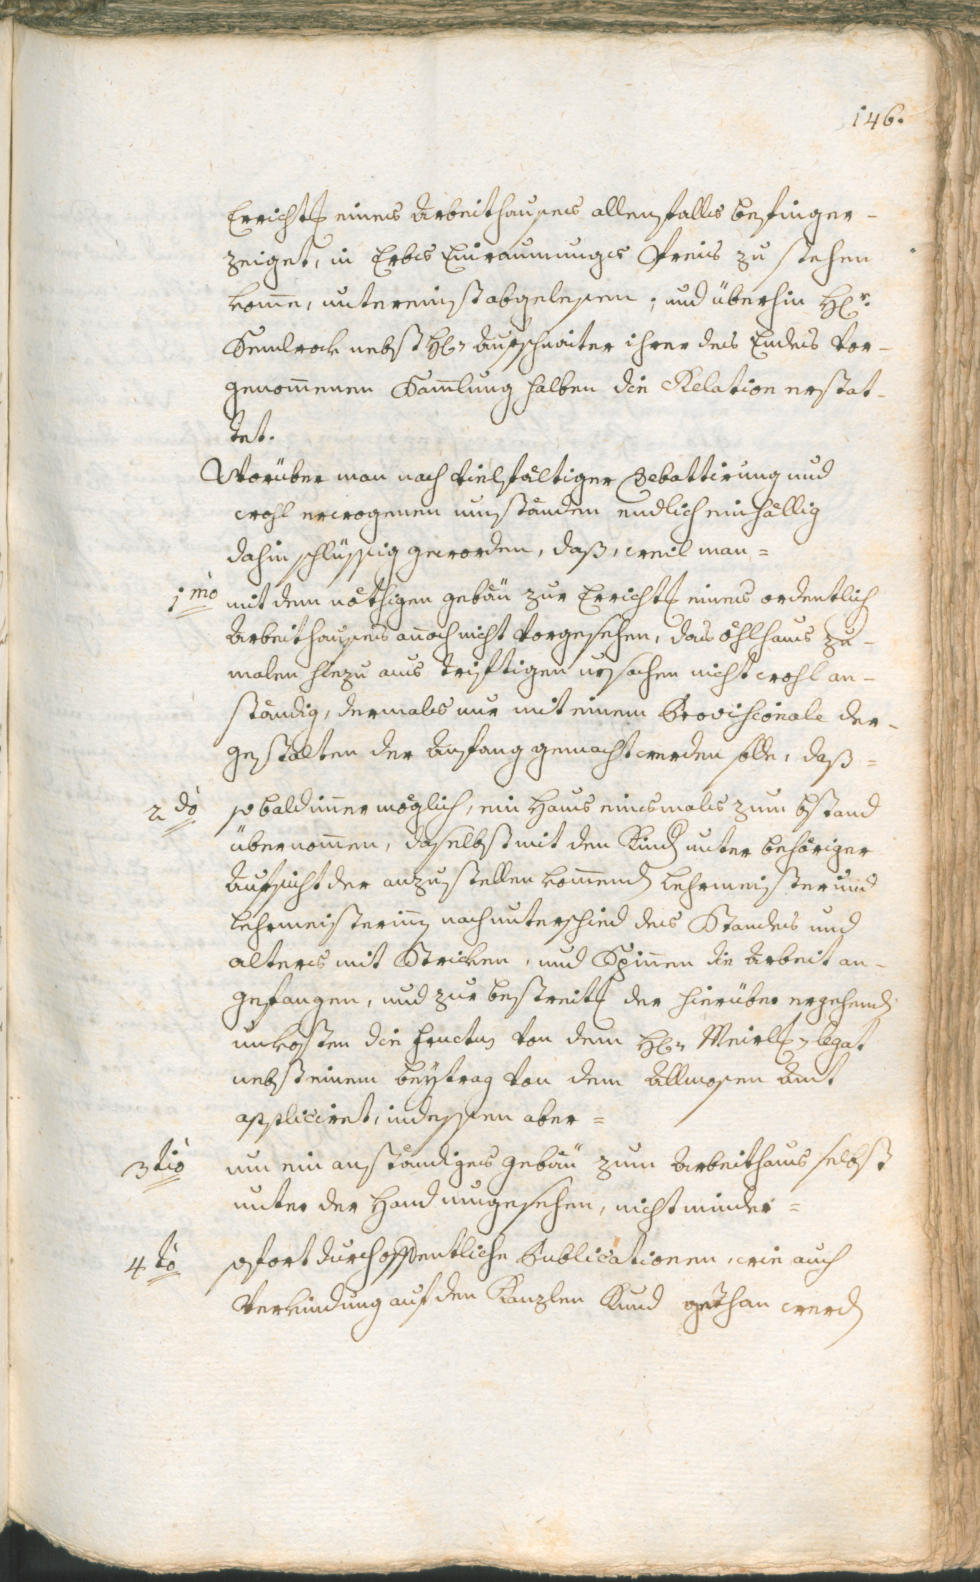 146.
Erricht[un]g eines Arbeithauses allenfalls befinger-
zeiget, in Erbes Einraumungs Preis zu stehen
kome, untereinst abgelesen; und überhin H[er]r
Semlrock nebst H[errn] Aufschnaiter ihrer des Endes vor-
genommenen Sammlung halben die Relation erstat-
tet.
Worüber man nach vielfältiger Debattirung und
wohl erwogenen umständen endlich einhällig
dahin schlüssig geworden, daß, weil man =
1mò mit dem nöthigen gebäü zur Erricht[un]g eines ordentlich[en]
Arbeithauses annoch nicht vorgesehen, das öhlhaus zu-
malen hiezu aus triftigen ursachen nicht wohl an-
ständig, dermals nur mit einem Provisionale der-
gestalten der Anfang gemacht werden solle, daß =
2dò so bald immer möglich, ein Haus einsmals zum bstand
übernommen, daselbst mit den Kind[ern] unter behöriger
Aufsicht der anzustellen kommend[en] Lehrmeister und
Lehrmeisterinn[en] nach unterschied des Standes und
alters mit Stricken, und Spinnen die Arbeit an-
gefangen, und zur bestreit[un]g der hierüber ergehend[en]
unkösten die fructus von dem H[errn] Meirl[...] legat
nebst einem beÿtrag von dem Allmosen Amt
appliciret, indessen aber =
3tiò um ein anständiges gebäü zum Arbeithaus selbst
unter der Hand umgesehen, nicht minder =
4tò sofort durch offentliche Publicationen, wie auch
Verkündung auf den Kanzlen Kund gethan werd[en]